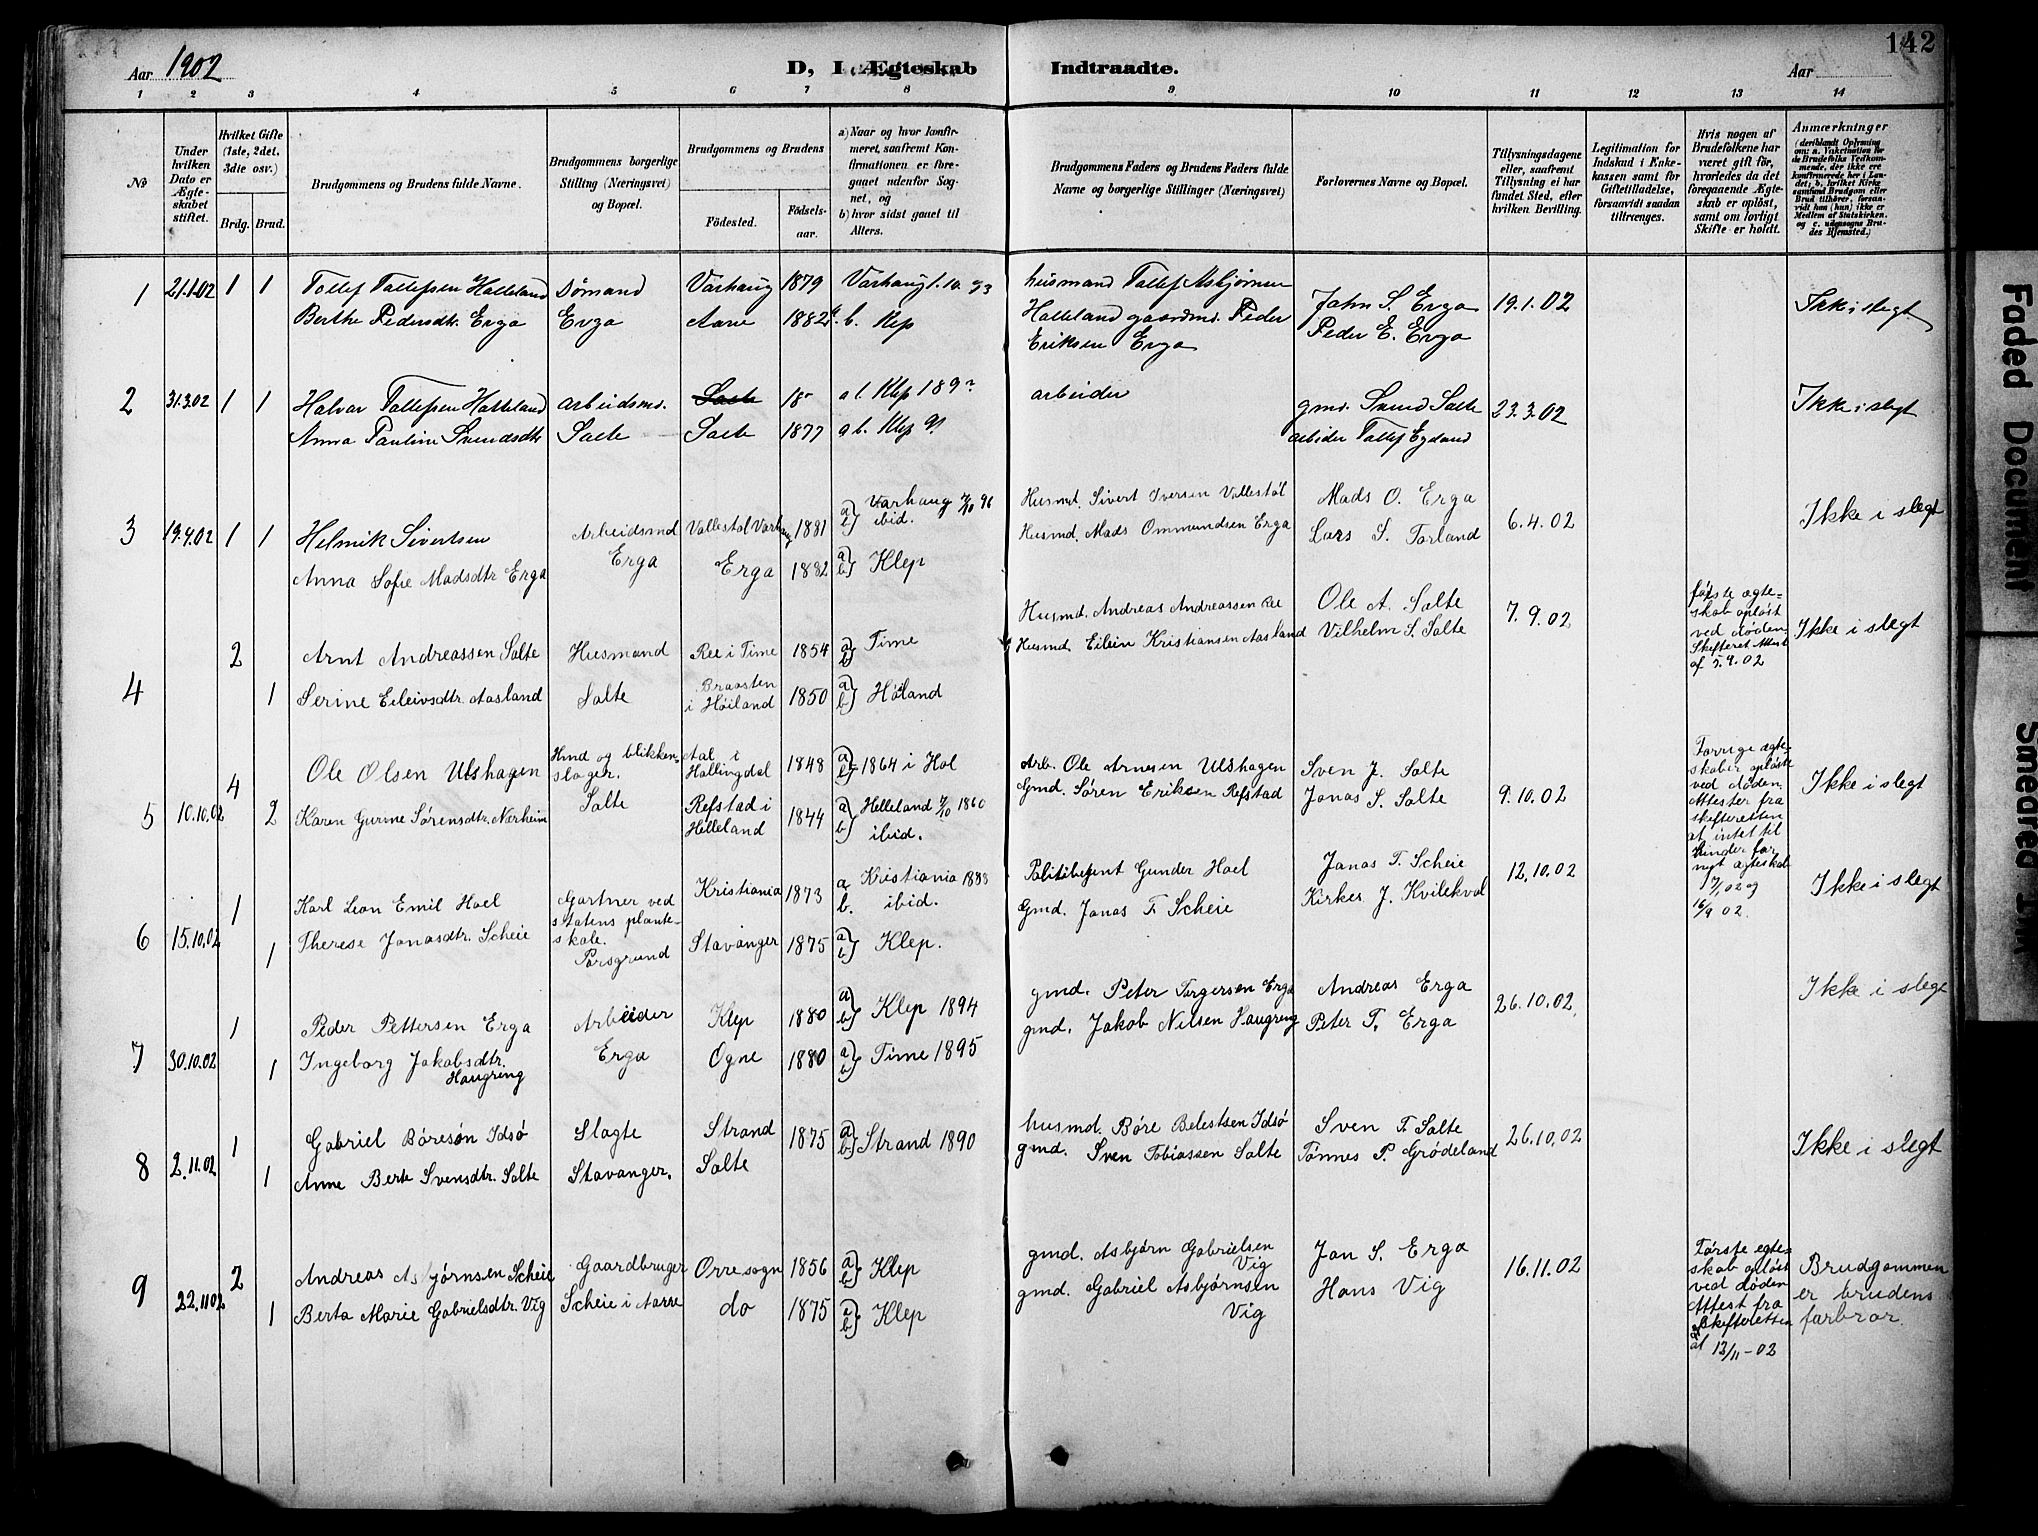 142
Aar 1902
D, I Ægteskab Indtraadte.
Aar
1 2 3 4 5 6 7 8 9 10 11 12 13 14
№
Under hvilken Dato er Ægteskabet stiftet.
Hvilket Gifte (1ste, 2det, 3die osv.)
Brdg. Brud.
Brudgommens og Brudens fulde Navne.
Brudgommens borgerlige Stilling (Næringsvei) og Bopæl.
Brudgommens og Brudens
Födested.
Födsels-aar.
a) Naar og hvor konfirmeret, saafremt Konfirmationen er foregaaet udenfor Sognet, og
b) hvor sidst gaaet til Alters.
Brudgommens Faders og Brudens Faders fulde Navne og borgerlige Stillinger (Næringsvei)
Forlovernes Navne og Bopæl.
Tillysningsdagene eller, saafremt Tillysning ei har fundet Sted, efter hvilken Bevilling.
Legitimation for Indskud i Enkekassen samt for Giftetilladelse, forsaavidt saadan tiltrænges.
Hvis nogen af Brudefolkene har været gift för, hvorledes da det foregaaende Ægteskab er oplöst, samt om lovligt Skifte er holdt.
Anmærkninger (deriblandt Oplysning om: a. Vakcination for de Brudefolks Vedkommende, der ikke ere konfirmerede her i Landet; b. hvilket Kirkesamfund Brudgom eller Brud tilhörer, forsavidt han (hun) ikke er Medlem af Statskirken. og c. udensogns Brudes Hjemsted.)
1 21.1.02 1 1 Tollef Tollefsen Halleland Sømand Varhaug 1879 Varhaug 1.10.93 husmand Tollef Asbjørnsen
Berthe Pedersdtr. Erga Erga Aarre 1882 b. Klep Halleland gaardmd. Peder
Eriksen Erga
John S. Erga
Peder E. Erga
19.1.02 Ikke i slegt
2 31.3.02 1 1 Halvor Tollefsen Hatteland arbeidsmd. Salte 18 a b. Klep 189 arbeider
Anna Pauline Svendsdtr Salte Salte 1877 a b. Klep 9
gmd. Svend Salte
arbeider Tollef Egeland
23.3.02 Ikke i slegt
3 19.4.02 1 1 Helmik Sivertsen Arbeidsmd Vollestøl Varhaug 1881 a) b) Varhaug 2/10 96 ibid. Husmd. Sivert Iversen Vollestøl
Anna Sofie Madsdtr Erga Erga Erga 1882 a) b) Klep Husmd. Mads Ommundsen Erga
Mads O. Erga
Lars S. Torland
6.4.02 Ikke i slegt
4 2 Arnt Andreassen Salte Husmand Ree i Time 1854 a) b) Time Husmd. Andreas Andreassen Ree
1 Serine Eileivsdtr. Aasland Salte Braasten i Høiland 1850 a) b) Høland Husmd. Eilein Kristiansen Aasland
Ole A. Salte
Vilhelm S. Salte
7.9.02
første ægteskab opløst ved døden. Skifteret. Attest af 5.9.02
Ikke i slegt
5 10.10.02 4 Ole Olsen Ulshagen Hmd og blikkenslager. Aal i Hallingdal 1848 a) b) 1864 i Hol Arb. Ole Arnesen Ulshagen
2 Karen Gurine Sørensdtr. Nærheim Salte Refstad i Helleland 1844 a) b) Helleland 7/10 1860 ibid. Gmd. Sören Eriksen Refstad
Sven J. Salte
Jonas S. Salte
9.10.02
Forrige ægteskaber opløste ved døden. Attester fra skifteretten at intet til hinder for nyt ægteskab 1 7/, 02 og 16/9 02.
Ikke i slegt
6 15.10.02 1 Karl Leon Emil Hoel Gartner ved statens planteskole. Kristiania 1873 a b. Kristiania 1888 ibid. Politibetjent Gunder Hoel
1 Therese Jonasdtr. Scheie Porsgrund Stavanger 1875 a) b) Klep. Gmd. Jonas T. Scheie
Jonas T. Scheie
Kirkes. J. Kvilekval
12.10.02 Ikke i slegt
7 30.10.02 1 Peder Pettersen Erga Arbeider Klep 1880 a) b) Klep 1894 gmd. Peter Torgersen Erga
1 Ingeborg Jakobsdtr. Haugreng Erga Ogne 1880 a) b) Time 1895 gmd. Jakob Nilsen Haugreng
Andreas Erga
Peter T. Erga
26.10.02. Ikke i slegt
8 2.11.02 1 Gabriel Böresön Idsö Slagte Strand 1875 a) b) Strand 1890 husmd. Böre Belestsen Idsö
1 Anne Berte Svensdtr. Salte Stavanger. Salte gmd. Sven Tobiassen Salte
Sven T. Salte
Tönnes P. Grödeland
26.10.02 Ikke i slegt
9 22.11.02 2 Andreas Asbjørnsen Scheie Gaardbruger Orre sogn 1856 a) b) Klep gmd. Asbjørn Gabrielsen Vig
1 Berta Marie Gabrielsdtr. Vig Scheie i Aarre do 1875 a) b) Klep gmd. Gabriel Asbjørnsen Vig
Jon S. Erga
Hans Vig
16.11.02
Første egteskab opløst ved døden Attest fra Skifteretten af 13/11-02
Brudgommen er brudens farbror.
Faded Document
Smeared Ink